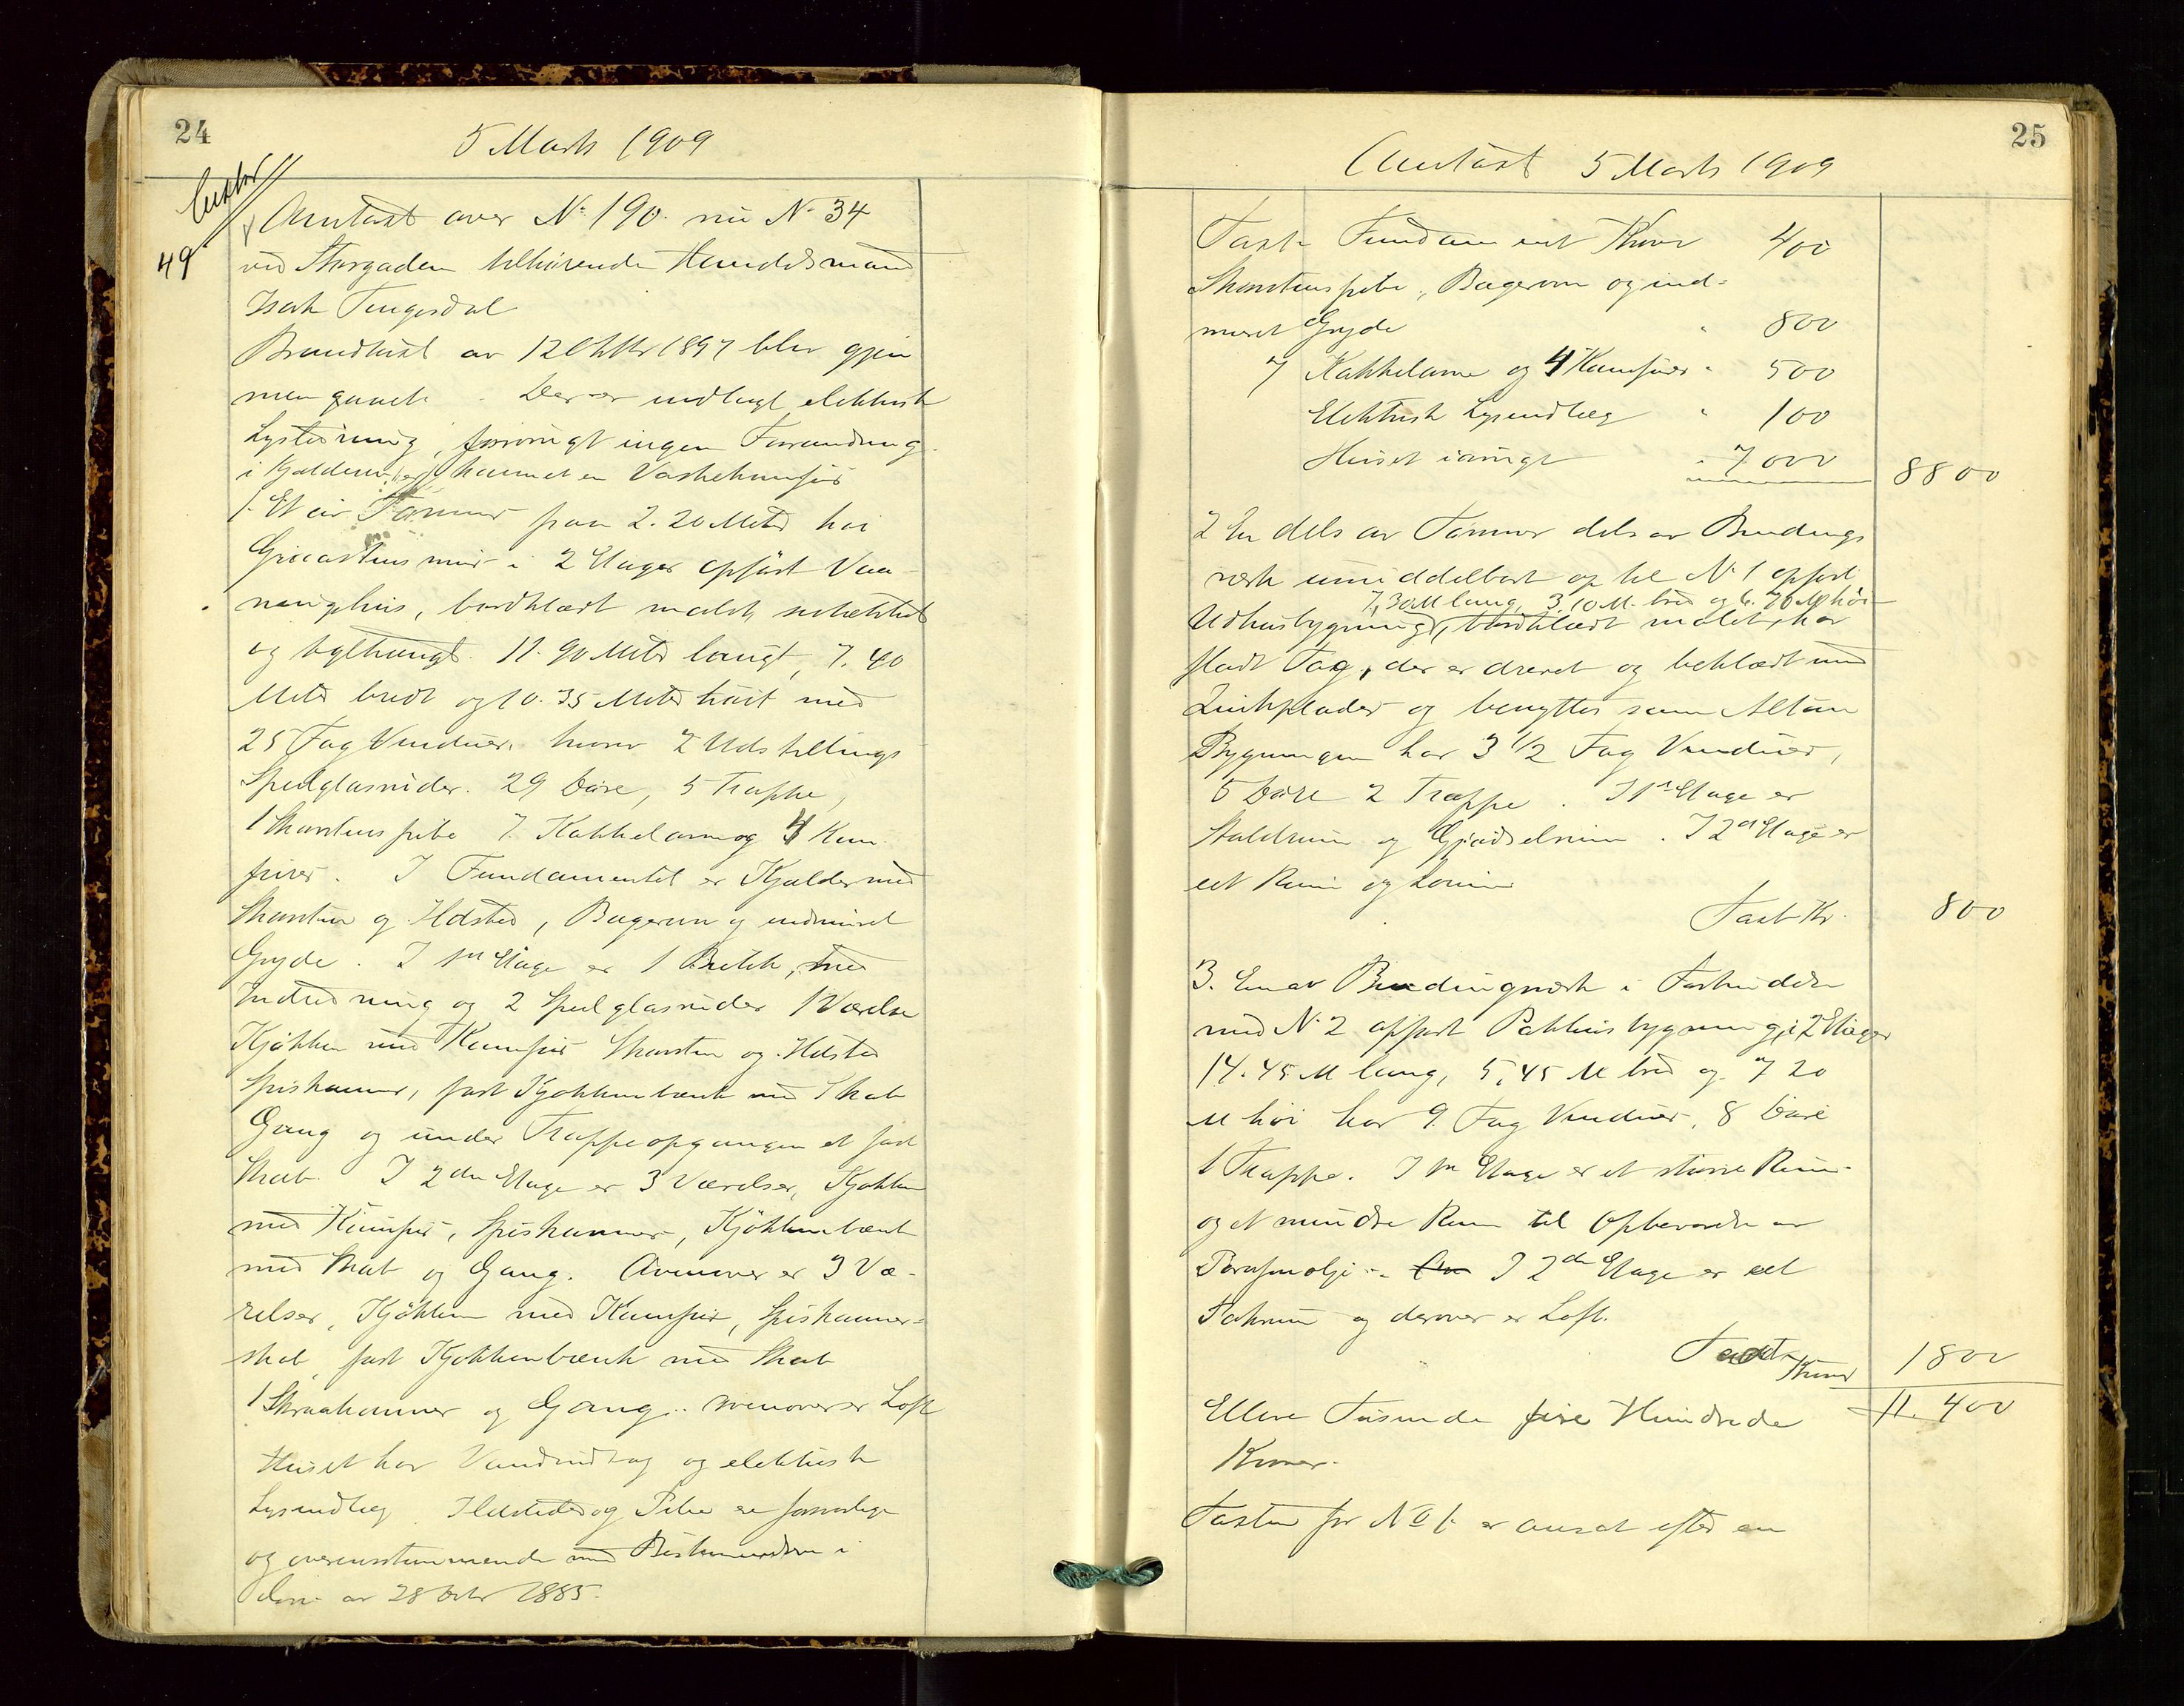 24
5 Marts 1909
49
Omtaxt over N: 190. nu N. 34
ved Storgaden tilhörende Handelsmand
Isak Tengesdal
Brandtaxt av 12 Oktbr 1897 blev gjen
nemgaaet. Der er indlagt elektrisk
Lysledning, forövrigt ingen Forandring
i Kjælderen er kommet en Vaskekomfür
1. Et av Tömmer paa 2.20 Meter höi
Graastensmür i 2 Etager opfört Vaa-
ningshüs, bordklædt malet
og teglhængt. 11.90 Meter langt, 7.40
Meter bredt og 10.35 Meter höit med
25 Fag Vinduer hvorav 2 Udstillings
Speilglasruder. 29 Döre, 5 Trappe,
1 Skorstenspibe 7 Kakkelovne og 4 Kom-
fürer. I Fundamentet er Kjælder med
Skorsten og Ildsted, Bagerovn og indmüret
Gryde. I 1ste Etage er 1 Butik, med
Indredning og 2 Speilglasruder 1 Værelse
Kjökken med Komfür Skorsten og Ildsted
Spiskammer, fast Kjökkenbænk med Skab
Gang og under Trappeopgangen et fast
Skab. I 2den Etage er 3 Værelser, Kjökken
med Komfür, Spiskammer, Kjökkenbænk
med Skab og Gang. Ovenover er 3 Væ-
relser, Kjökken med Komfür, Spiskammer-
skab, fast Kjökkenbænk med Skab
1 Skraakammer og Gang. ovenover er Loft
Huset har Vandindlag og elektrisk
Lysindlæg. Ildsteder og Pibe er forsvarlige
og overensstemmende med Bestemmelsen i
Lov av 28 Oktr 1885.
25
Omtaxt 5 Marts 1909
Taxt Fundament Kroner 400
Skorstenspibe, Bagerovn og ind-
müret Gryde " 800
7 Kakkelovne og 4 Komfürer " 500
Elektrisk Lysindlæg " 100
Huset iövrigt " 7000 8800
2 En dels av Tömmer dels av Bindings
værk umiddelbart op til N. 1 opfört
7,30 M lang, 3.10 M. bred og 6.70 M höi
Udhusbygning, bordklædt malet, har
fladt Tag, der er drevet og beklædt med
Zinkplader og benyttes som Altan
Bygningen har 3 1/2 Fag Vinduer,
5 Döre 2 Trappe. I 1ste Etage er
Staldrum og Gjödselrum. I 2den Etage er
et Rum og
Taxt Kr. 800
3. En av Bindingsværk i Forbindelse
med N. 2 opfört Pakhusbygning i 2 Etager
14.45 M lang, 5,45 M bred og 7 20
M höi har 9 Fag Vinduer, 8 Döre
1 Trappe. I 1ste Etage er et större Rum
og et mindre Rum til Opbevarelse av
Parafinolje. I 2den Etage er et
Pakrum og derover er Loft.
Taxt Kroner 1800
11.400
Elleve Tusinde fire Hundrede
Kroner.
Taxten for No 1. er ansat efter en